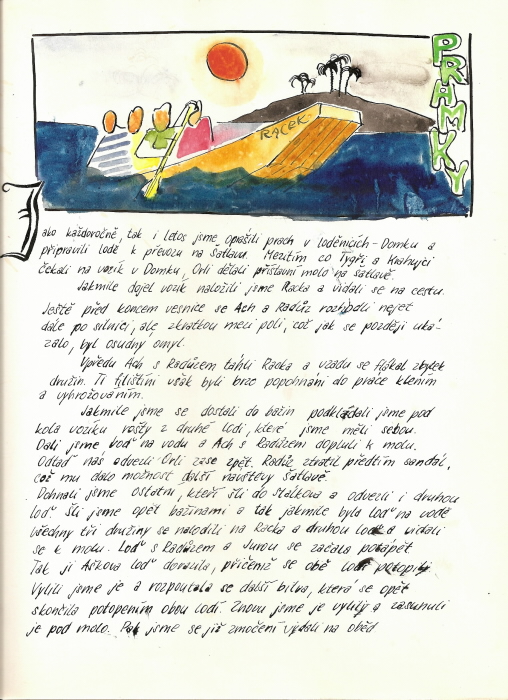 PRAMKY
RACEK
Jako každoročně, tak i letos jsme oprášili prach v loděnicích - Domku a
připravili lodě k převozu na Šatlavu. Mezitím co Tygři a Krahujci
čekali na vozík v Domku, Orli dělali přístavní molo na Šatlavě.
Jakmile dojel vozík naložili jsme Racka a vydali se na cestu.
Ještě před koncem vesnice se Ach a Radůz rozhodli nejet
dále po silnici, ale zkratkou mezi poli, což jak se později uká-
zalo, byl osudný omyl.
Vpředu Ach s Radůzem táhli Racka a vzadu se flákal zbytek
družin. Ti filištíni však byli brzo popohnáni do práce klením
a vyhrožováním.
Jakmile jsme se dostali do bažin podkládali jsme pod
kola vozíku rošty z druhé lodi, které jsme měli sebou.
Dali jsme loď na vodu a Ach s Radůzem dopluli k molu.
Odtad nás odvezli Orli zase zpět. Radůz ztratil předtím sandál,
což mu dalo možnost další návštěvy Šatlavě.
Dohnali jsme ostatní, kteří šli do Stalkova a odvezli i druhou
loď. Šli jsme opět bažinami a tak jakmile byla loď na vodě
všechny tři družiny se nalodili na Racka a druhou loď a vydali
se k molu. Loď s Radůzem a Jurou se začala potápět
Tak ji Áčkova loď dorazila, přičemž se obě lodě potopily
Vylili jsme je a rozpoutala se další bitva, která se opět
skončila potopením obou lodí. Znovu jsme je vylily a zasunuli
je pod molo. Pak jsme se již zmočení vydali na oběd